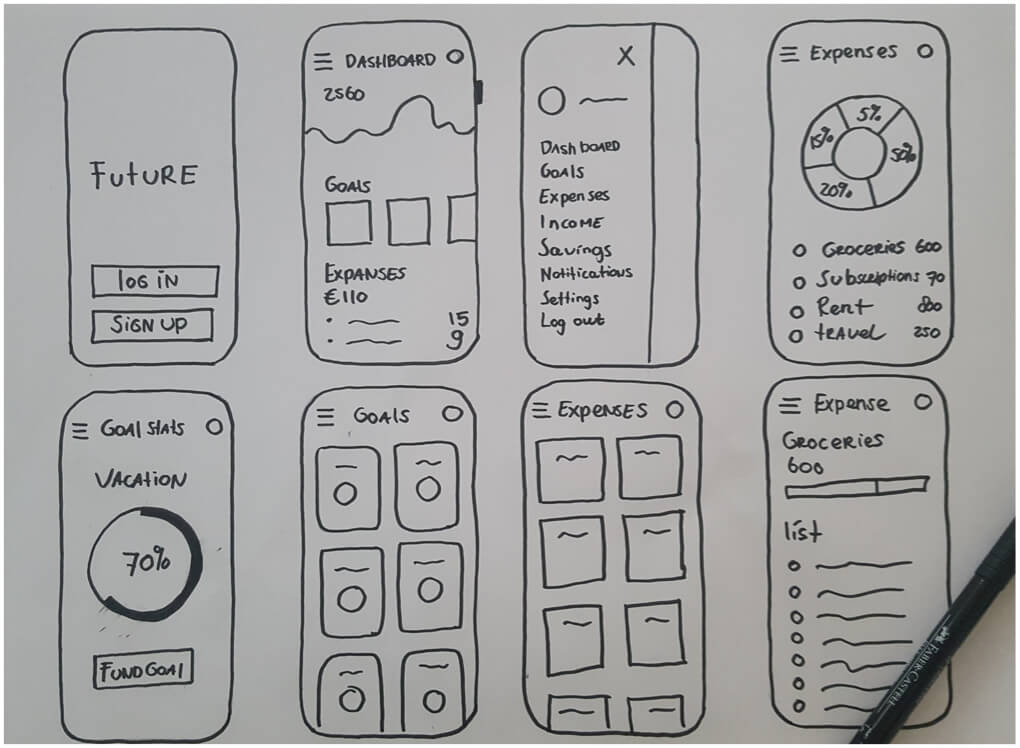 FUTURE
LOG IN
SIGN UP
DASHBOARD
2560
GOALS
EXPANSES
€110
15
9
X
Dashboard
Goals
Expenses
Income
Savings
Notifications
Settings
Log out
Expenses
5%
15%
50%
20%
Groceries 600
Subscriptions 70
Rent 800
travel 250
GOAL Stats
VACATION
70%
FUND GOAL
GOALS
EXPENSES
Expense
Groceries
600
list
FABER-CASTELL